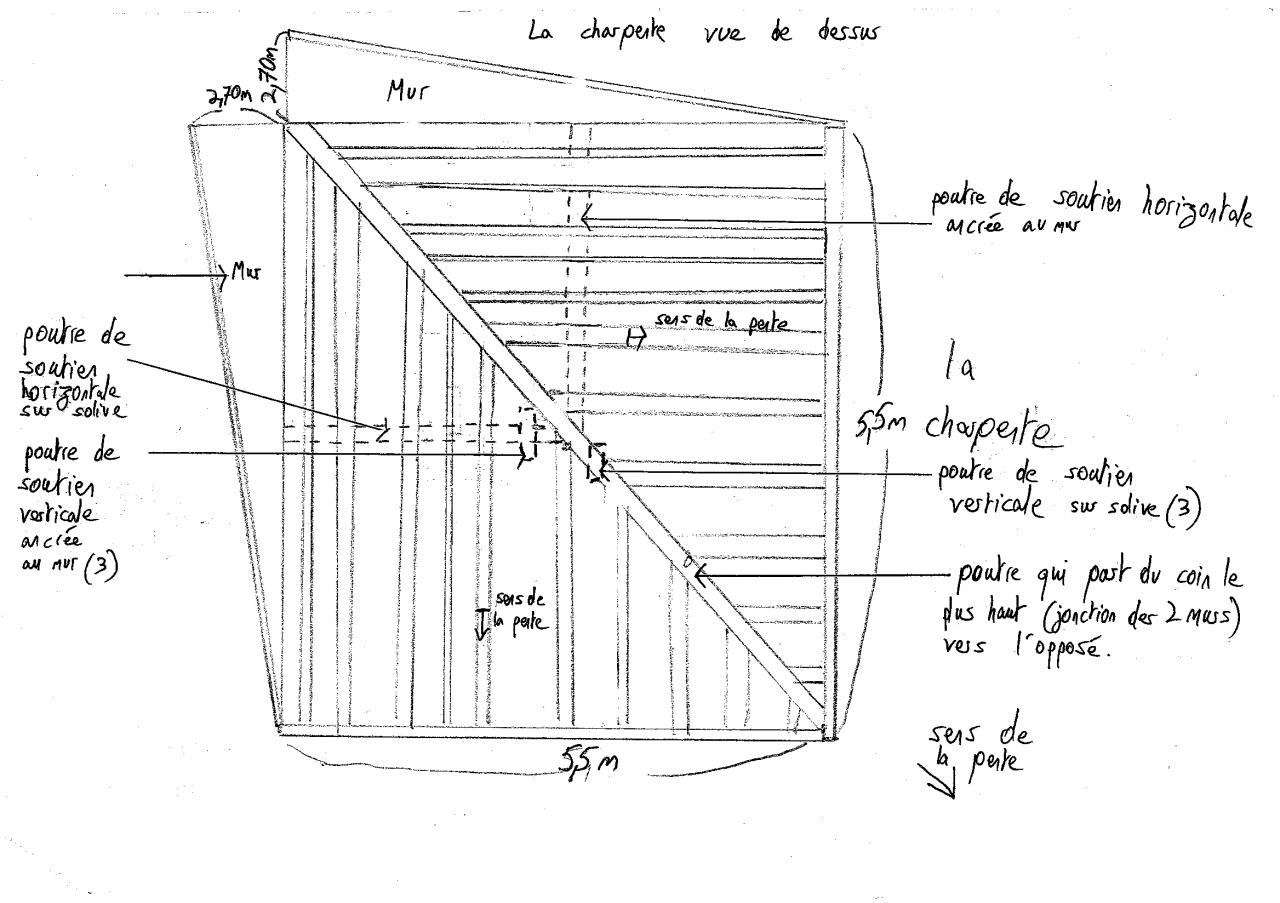 La charpente vue de dessus
2,70m
2,70m
Mur
poutre de soutien horizontale
ancrée au mur
Mur
sens de la pente
poutre de
soutien
horizontale
sur solive
la
charpente
5,5m
poutre de
soutien
verticale
ancrée
au mur (3)
poutre de soutien
verticale sur solive (3)
poutre qui part du coin le
plus haut (jonction des 2 murs)
vers l'opposé.
sens de
la pente
sens de
la pente
5,5m